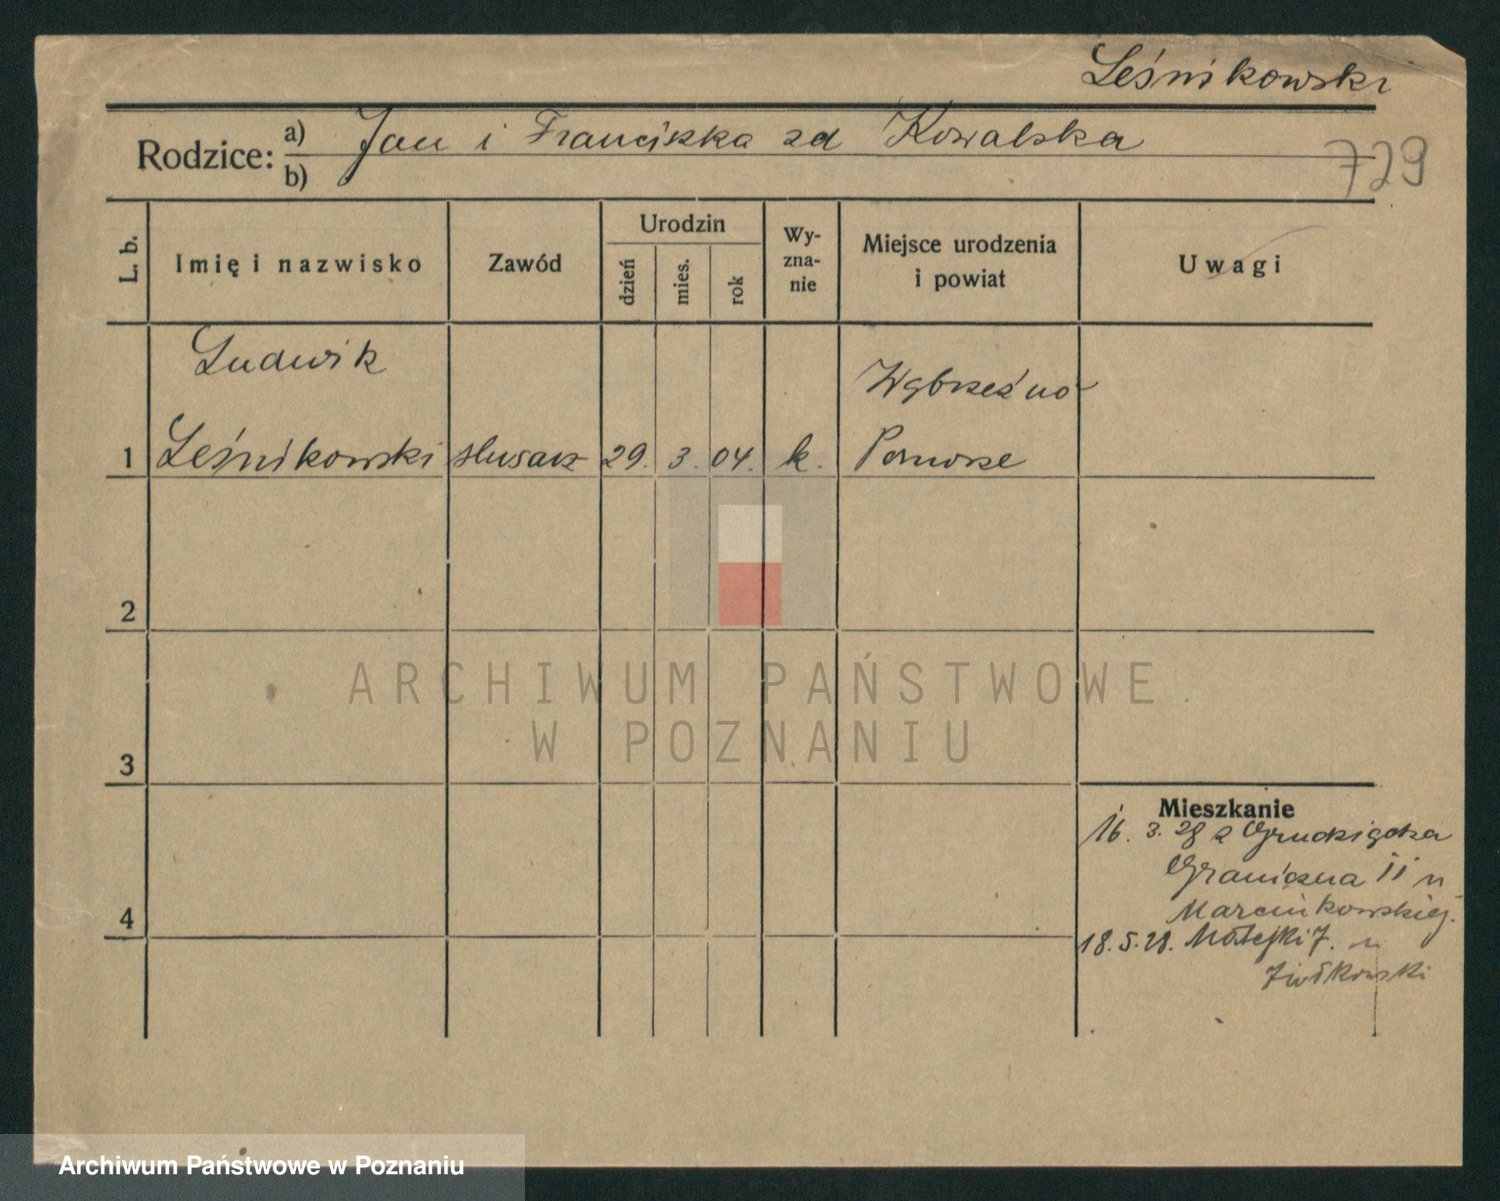 Leśnikowski
Rodzice: a) Jan i Franciszka zd Kowalska
b)
729
L. b.
Imię i nazwisko
Zawód
Urodzin
dzień
mies.
rok
Wy-
zna-
nie
Miejsce urodzenia
i powiat
Uwagi
Ludwik
Wąbrzeźno
1 Leśnikowski ślusarz 29. 3. 04. k. Pomorze
2
ARCHIWUM PAŃSTWOWE
W POZNANIU
3
Mieszkanie
16. 3. 28 z Grudziądza
Graniczna 11 u
Marcinkowskiej.
4
18.5.28. Matejki 7. u
Ziółkowski
Archiwum Państwowe w Poznaniu